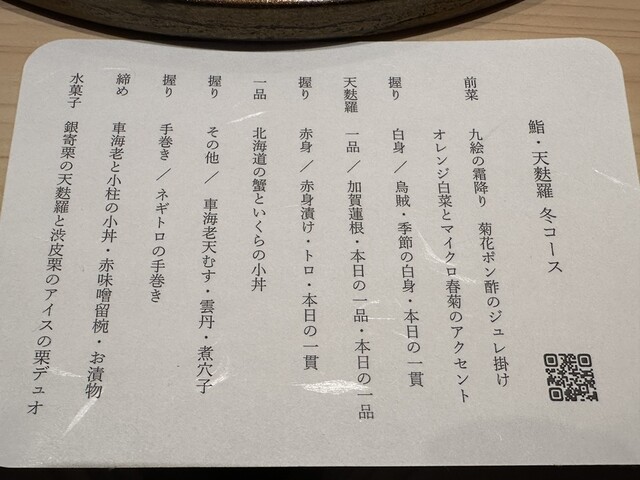 鮨・天麩羅 冬コース
前菜 九絵の霜降り 菊花ポン酢のジュレ掛け
オレンジ白菜とマイクロ春菊のアクセント
握り 白身／烏賊・季節の白身・本日の一貫
天麩羅 一品／加賀蓮根・本日の一品・本日の一品
握り 赤身／赤身漬け・トロ・本日の一貫
一品 北海道の蟹といくらの小丼
握り その他／車海老天むす・雲丹・煮穴子
握り 手巻き／ネギトロの手巻き
締め 車海老と小柱の小丼・赤味噌留椀・お漬物
水菓子 銀寄栗の天麩羅と渋皮栗のアイスの栗デュオ